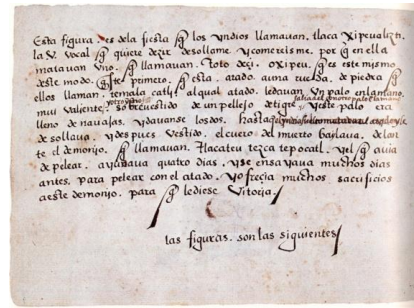 Esta figura es de la fiesta q̃ los yndios llamavan. tlaca xipevalizti.
la V. vocal q̃ quiere dezir desollame. y comereisme. por q̃ en ella
matavan vno. q̃ llamavan. Toto deçi. oxipeu. q̃ es este mismo
deste modo. Este primero. q̃ esta. atado. a vna rueda. de piedra q̃
ellos llaman. temalacatl. al qual atado. le davan. vn palo en la mano.
muy valiente.
y otro yndio
so brevestido. de vn pellejo. de tigre. y este palo
lleno de navajas. y davanse los dos. hasta q̃
de sollava. y des pues vestido. el cuero. del muerto baylava. delan
te el demonio. q̃ llamavan. tlacateu tezca tepocatl. y el q̃ avia
de pelear. ayunava quatro dias. y se en sayava muchos dias
antes. para pelear con el atado. y ofrecia muchos sacrificios
a este demonio. para q̃ le diese Vitoria.
las figuras. son las siguientes